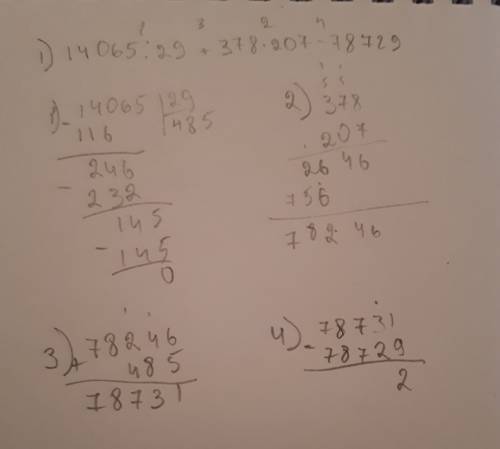 1 3 2 4
1) 14065:29+378·207-78729
1) -14065 |29
116 |485
246
- 232
145
- 145
0
1 1
5 5
2) 378
· 207
2646
756
78246
3) + 78246
485
78731
4) - 78731
78729
2